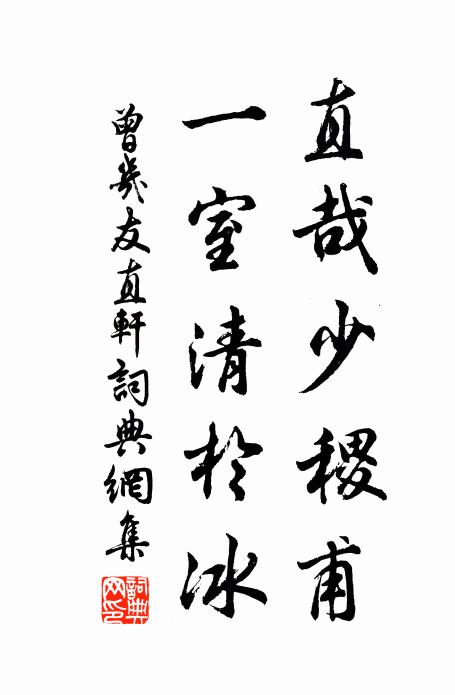 直哉少稷甫
一室清於冰
曾幾友直軒詞典網集
詞典網印